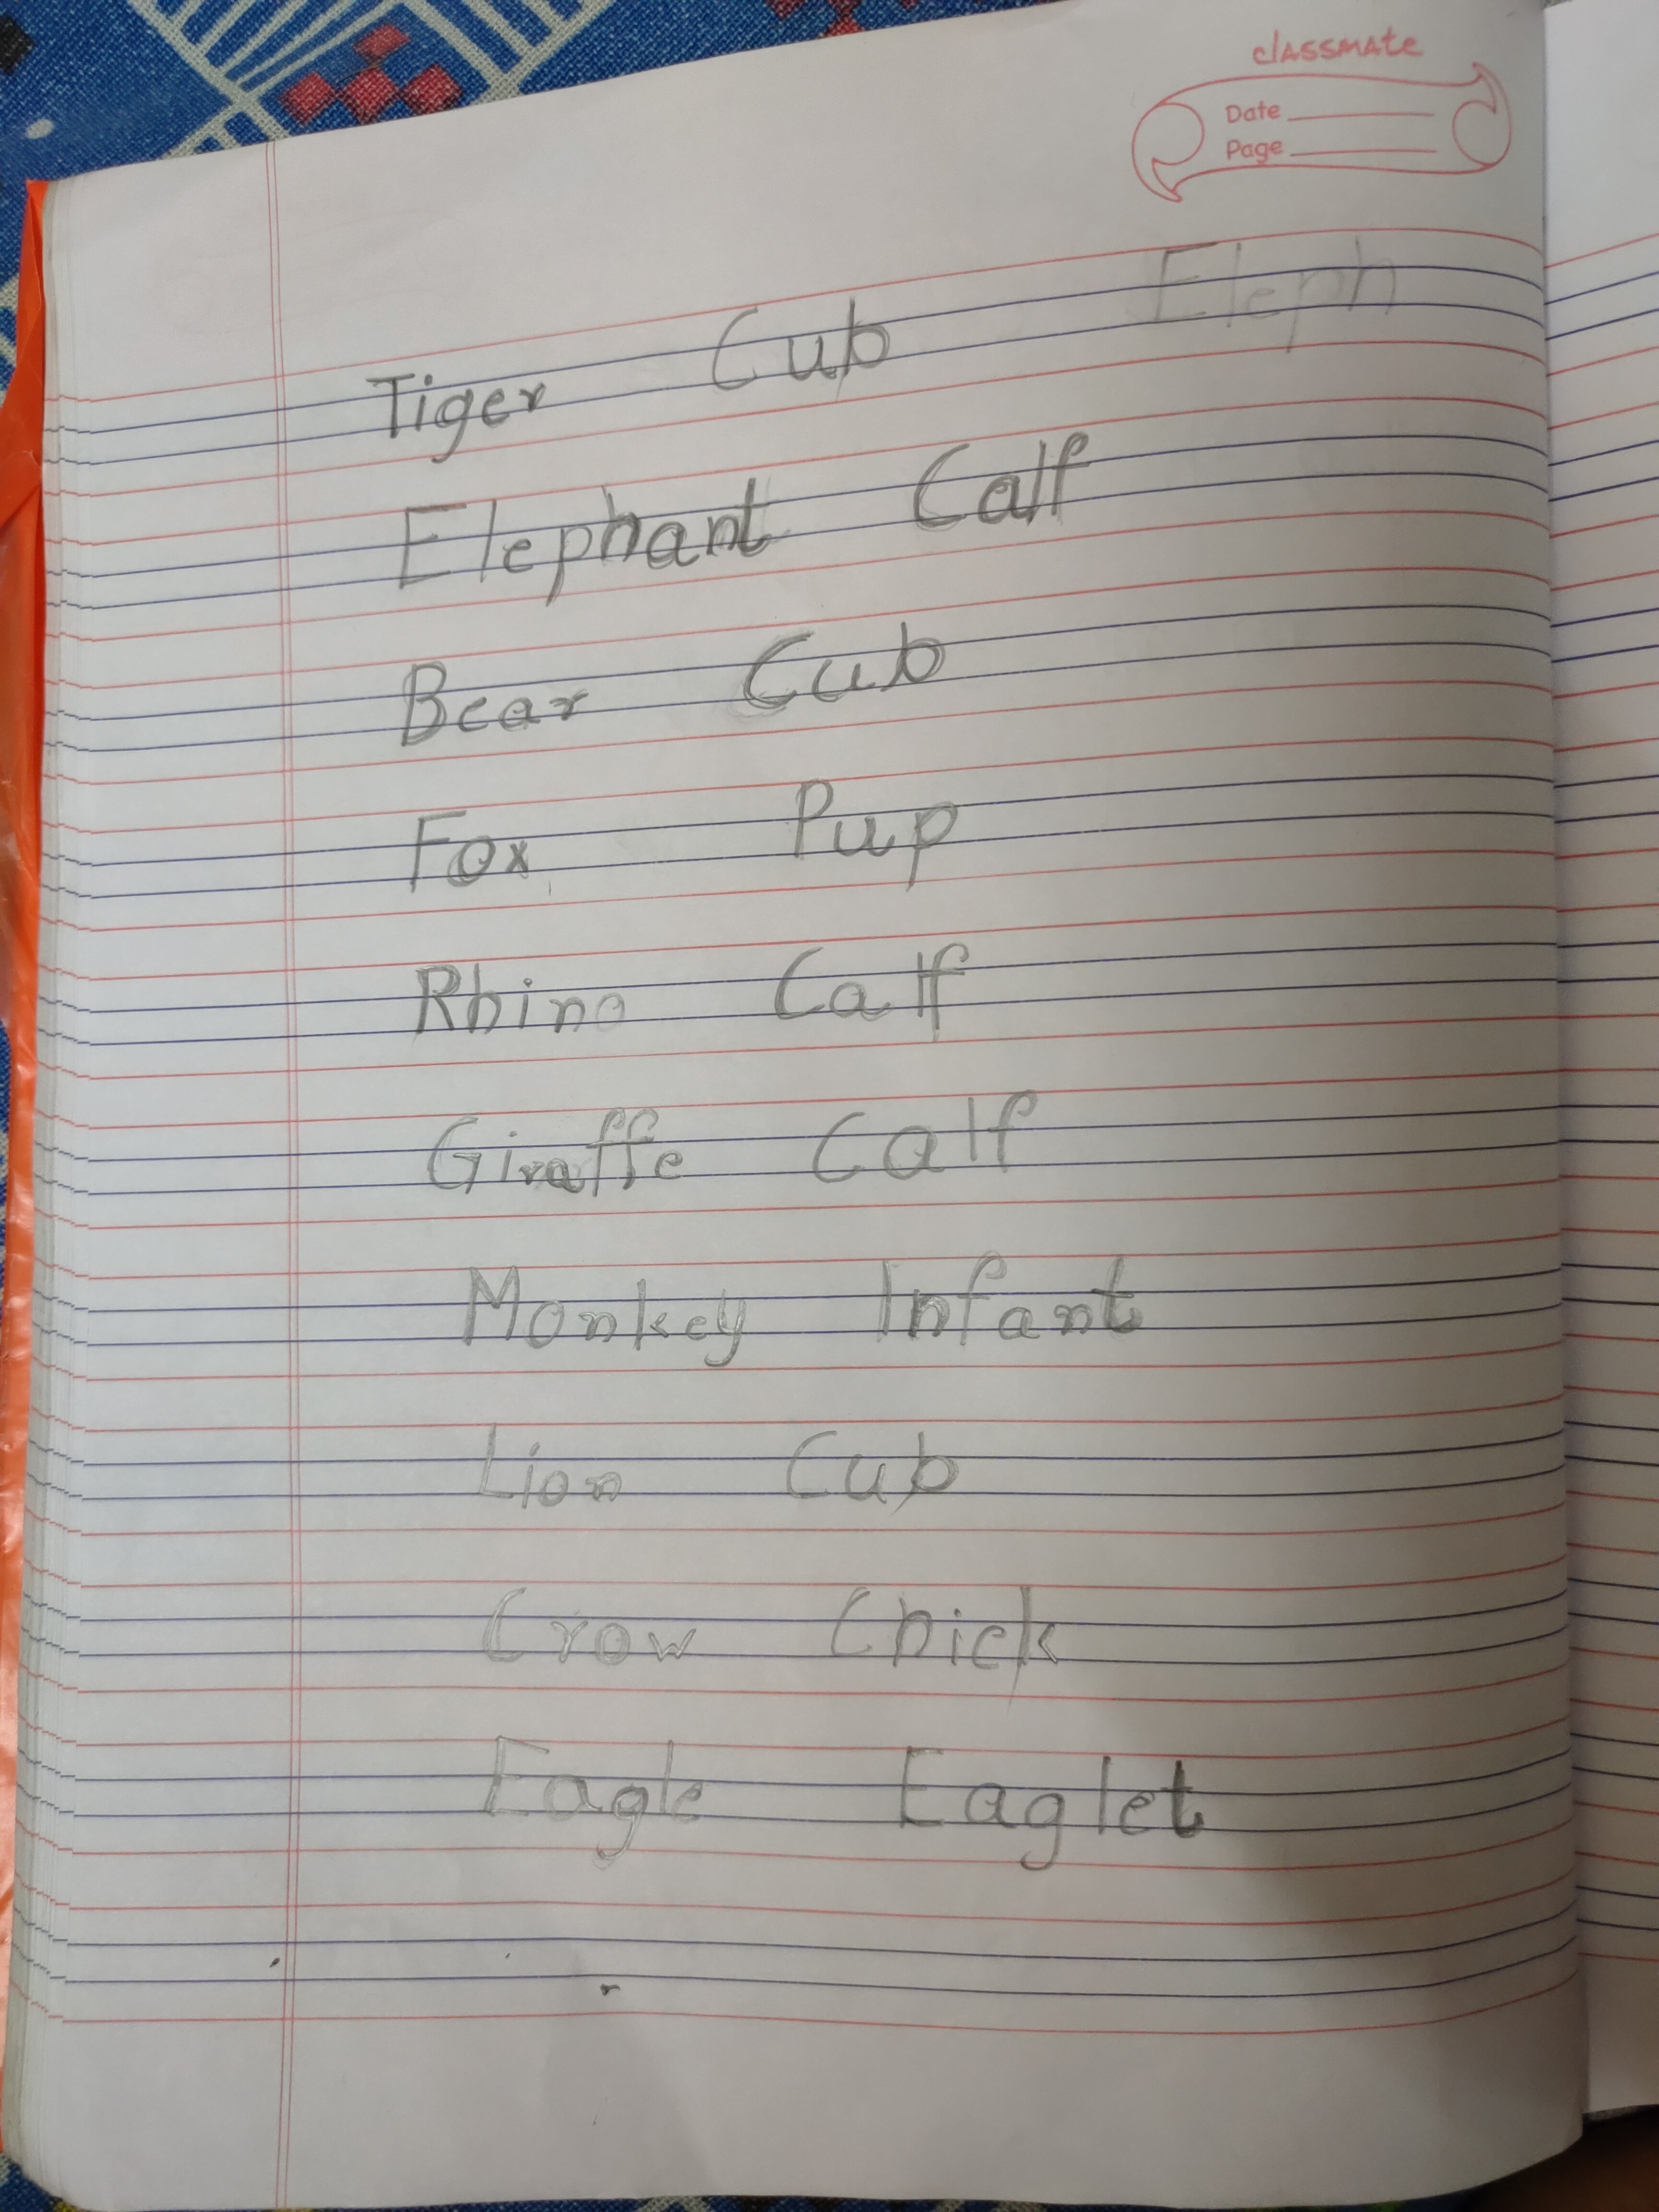 classmate
Date
Page
Eleph
Tiger Cub
Elephant Calf
Bear Cub
Fox Pup
Rhino Calf
Giraffe Calf
Monkey Infant
Lion Cub
Crow Chick
Eagle Eaglet